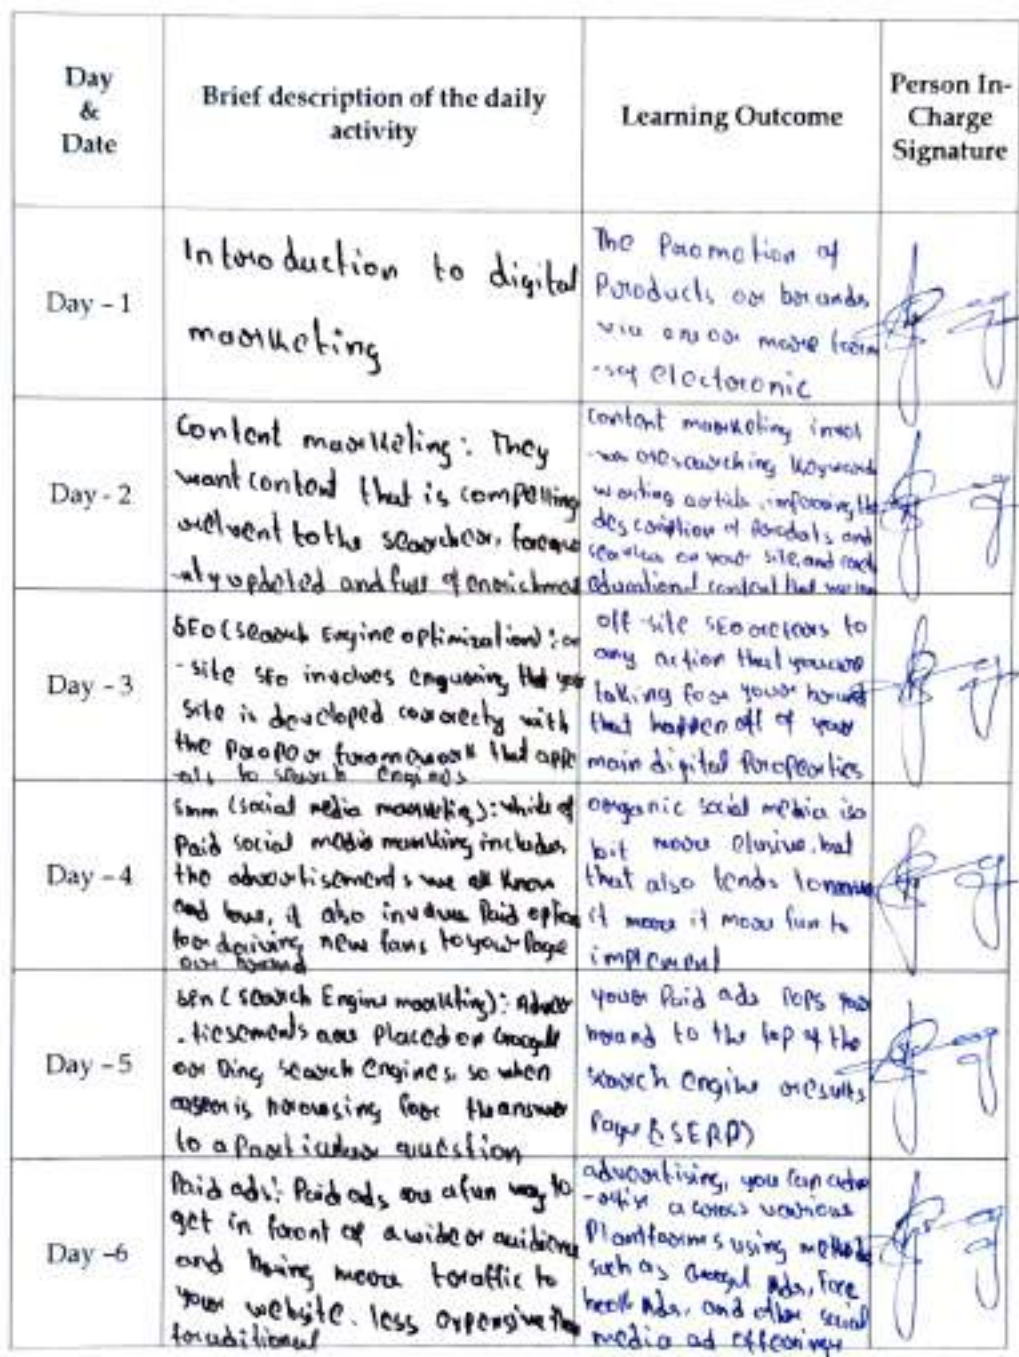 Day
&
Date
Brief description of the daily
activity
Learning Outcome
Person In-
Charge
Signature
Day - 1
Introduction to digital
marketing
The Promotion of
Products or brands
via one or more form
-sof electronic
Day - 2
Content marketing: They
want content that is compelling
relvent to the searcher, freque
-ntly updated and full of enrichmen
content marketing invol
-ves researching keywords
writing article, improving the
description of Products and
services on your site, and
educational content that
Day - 3
SEO (Search Engine optimization): on
-site SEO involves enqusring that your
site is developed correctly with
the proper framework that appe
-als to search engines
off-site SEO refers to
any action that you are
taking for your brand
that happen off of your
main digital Properties
Day - 4
Smm (social media marketing): while
Paid social media marketing includes
the advertisements we all know
and love, it also involves Paid option
for driving new fans to your Page
or brand
organic social media is a
bit more elusive, but
that also tends to
it more it more fun to
implement
Day - 5
(Search Engine marketing): Adver
-tiesements are Placed on Googel
or Bing search engines, so when
a user is browsing for the answer
to a Particular question
your Paid ads Pops your
brand to the top of the
search engine results
Page (SERP)
Day -6
Paid ads: Paid ads are a fun way to
get in front of a wider audience
and bring more traffic to
your website. less expensive than
traditional
advertising, you can adve
-rtise across various
Plantforms using methods
such as Googel Ads, Face
book Ads, and other social
media ad offerings